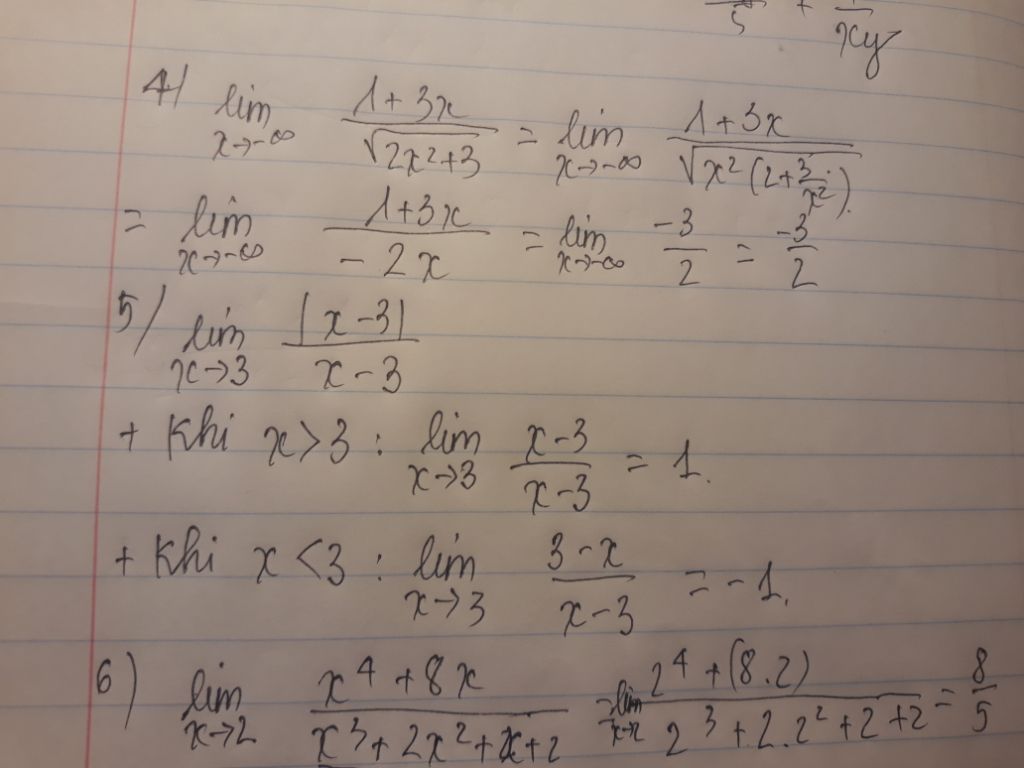 5 + xy
4) lim x→-∞ (1+3x)/√(2x²+3) = lim x→-∞ (1+3x)/√(x²(2+3/x²)).
= lim x→-∞ (1+3x)/(-2x) = lim x→-∞ -3/2 = -3/2
5) lim x→3 |x-3|/(x-3)
+ Khi x>3 : lim x→3 (x-3)/(x-3) = 1.
+ Khi x<3 : lim x→3 (3-x)/(x-3) = -1.
6) lim x→2 (x⁴+8x)/(x³+2x²+x+2) = lim (2⁴+(8.2))/(2³+2.2²+2+2) = 8/5